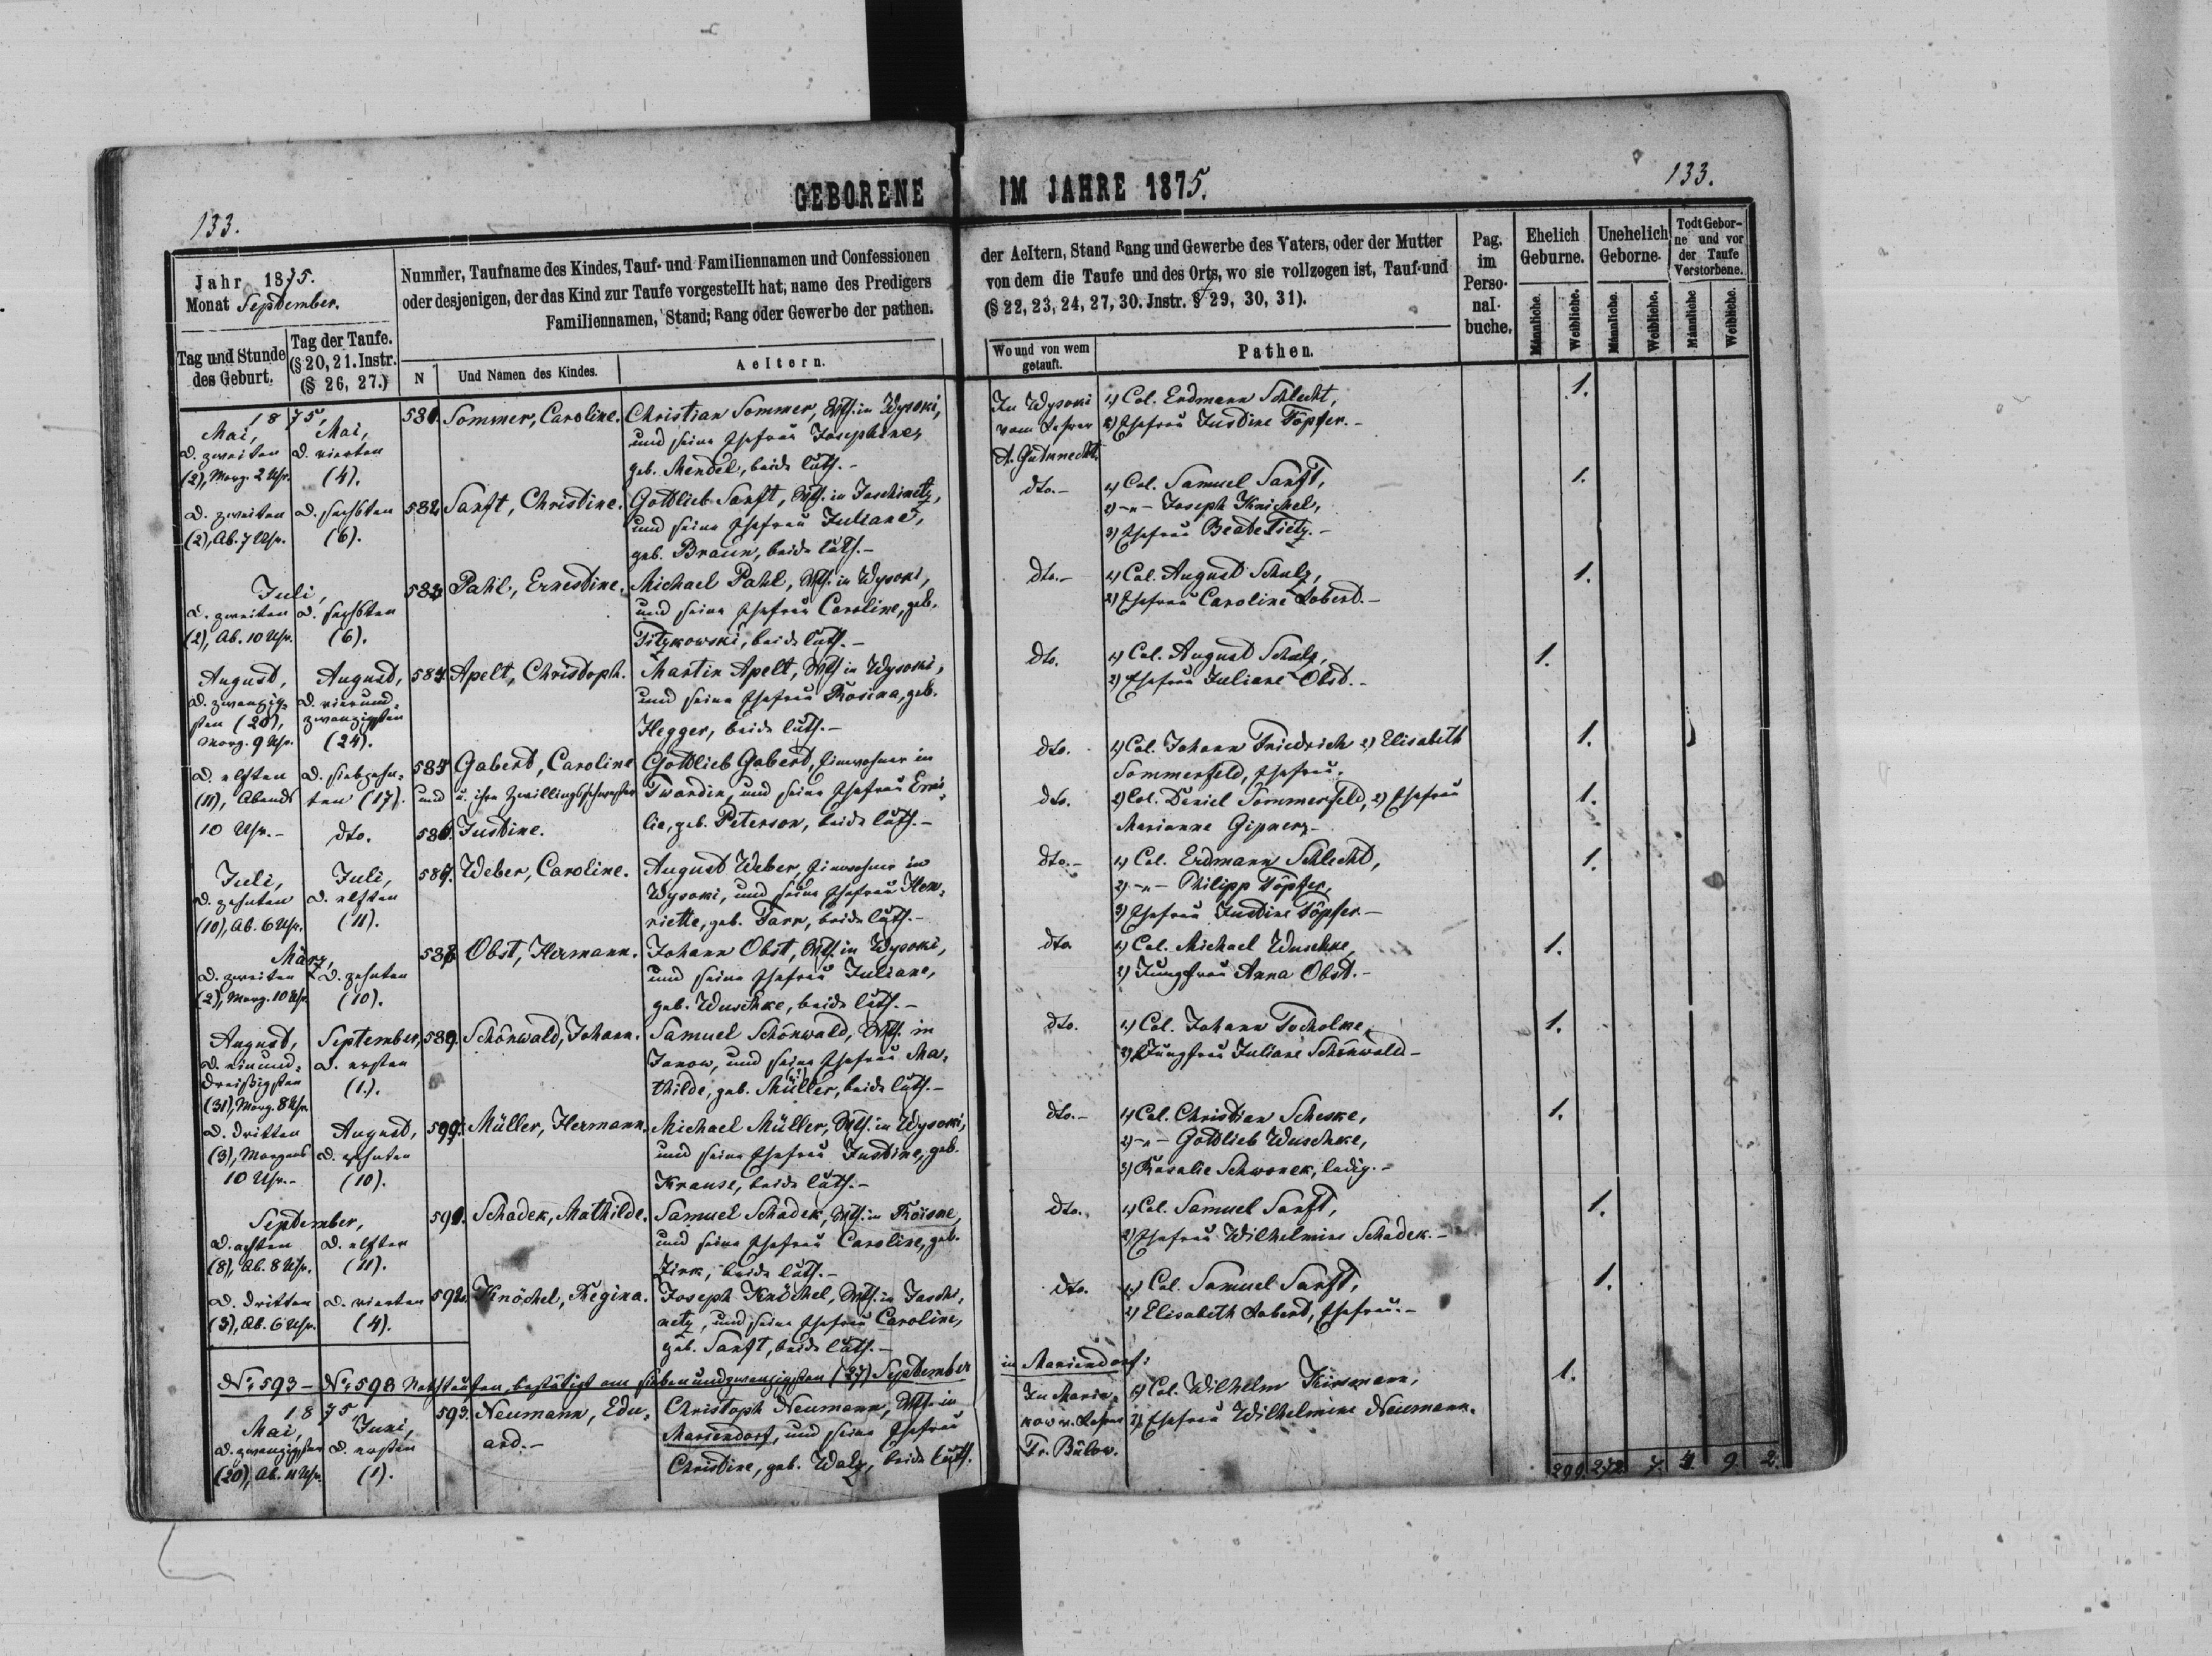 GEBORENE IM JAHRE 1875.
133.
133.
Jahr 1875.
Monat September.
Tag und Stunde des Geburt.
Tag der Taufe. (§ 20, 21. Instr. (§ 26, 27.)
Nummer, Taufname des Kindes, Tauf- und Familiennamen und Confessionen
oder desjenigen, der das Kind zur Taufe vorgestellt hat; name des Predigers
Familiennamen, Stand; Rang oder Gewerbe der pathen.
N
Und Namen des Kindes.
Aeltern.
der Aeltern, Stand Rang und Gewerbe des Vaters, oder der Mutter
von dem die Taufe und des Orts, wo sie vollzogen ist, Tauf-und
(§ 22, 23, 24, 27, 30. Jnstr. § 29, 30, 31).
Wo und von wem getauft.
Pathen.
Pag. im Perso-nal-buche.
Ehelich Geburne.
Unehelich Geborne.
Todt Gebor-ne und vor der Taufe Verstorbene.
Männliche.
Weibliche.
Männliche.
Weibliche.
Männliche
Weibliche.
1875,
Mai,
d. zweiten
(2), Morg. 2 Uhr.
Mai,
d. vierten
(4).
581.
Sommer, Caroline.
Christian Sommer, Wth. in Wysoki,
und seine Ehefrau Josephine,
geb. Mendel, beide luth. -
In Wysoki
vom Lehrer
A. Gutknecht.
1) Col. Erdmann Schlecht,
2) Ehefrau Justine Töpfer. -
1.
d. zweiten
(2), Ab. 7 Uhr.
d. sechsten
(6).
582
Sanft, Christine.
Gottlieb Sanft, Wth. in Jaschinetz,
und seine Ehefrau Juliane,
geb. Braun, beide luth. -
dto. -
1) Col. Samuel Sanft,
2) -"- Joseph Knichel,
3) Ehefrau Beate Tietz. -
1.
Juli,
d. zweiten
(2), Ab. 10 Uhr.
d. sechsten
(6).
583
Pahl, Ernestine.
Michael Pahl, Wth. in Wysoki,
und seine Ehefrau Caroline, geb.
Titzkowski, beide luth. -
dto. -
1) Col. August Schulz,
2) Ehefrau Caroline Jobert. -
1.
August,
d. zwanzig-
sten (20),
Morg. 9 Uhr.
August,
d. vierund-
zwanzigsten
(24).
584.
Apelt, Christoph.
Martin Apelt, Wth. in Wysoki,
und seine Ehefrau Rosina, geb.
Hegger, beide luth. -
dto.
1) Col. August Schulz,
2) Ehefrau Juliane Obst. -
1.
d. elften
(11), Abends
10 Uhr. -
d. siebzehn-
ten (17).
dto.
585
und
586.
Gabert, Caroline
u. ihre Zwillingsschwester
Justine.
Gottlieb Gabert, Einwohner in
Twardin, und seine Ehefrau Emi-
lie, geb. Peterson, beide luth. -
dto.
1) Col. Johann Friedrich 2) Elisabeth
Sommerfeld, Ehefrau.
1.
dto.
1) Col. Daniel Sommerfeld, 2) Ehefrau
Marianne Gipner. -
1.
Juli,
d. zehnten
(10), Ab. 6 Uhr.
Juli,
d. elften
(11).
587.
Weber, Caroline.
August Weber, Einwohner in
Wysoki, und seine Ehefrau Hen-
riette, geb. Farr, beide luth. -
dto. -
1) Col. Erdmann Schlecht,
2) -"- Philipp Töpfer,
3) Ehefrau Justine Töpfer. -
1.
März,
d. zweiten
(2), Morg. 10 Uhr.
d. zehnten
(10).
588
Obst, Hermann.
Johann Obst, Wth. in Wysoki,
und seine Ehefrau Juliane,
geb. Wuschke, beide luth. -
dto.
1) Col. Michael Wuschke,
2) Jungfrau Anna Obst. -
1.
August,
d. einund-
dreißigsten
(31), Morg. 8 Uhr.
September,
d. ersten
(1.).
589.
Schönwald, Johann.
Samuel Schönwald, Wth. in
Janow, und seine Ehefrau Ma-
thilde, geb. Müller, beide luth. -
dto.
1) Col. Johann Tocholke,
2) Jungfrau Juliane Schönwald -
1.
d. dritten
(3), Morgens
10 Uhr. -
August,
d. zehnten
(10).
590.
Müller, Hermann.
Michael Müller, Wth. in Wysoki,
und seine Ehefrau Justine, geb.
Krause, beide luth. -
dto. -
1) Col. Christian Scheske,
2) -"- Gottlieb Wuschke,
3) Rosalie Schwonek, ledig. -
1.
September,
d. achten
(8), Ab. 8 Uhr.
d. elften
(11).
591.
Schadek, Mathilde.
Samuel Schadek, Wth. in Roisne,
und seine Ehefrau Caroline, geb.
Zirk, beide luth. -
dto.
1) Col. Samuel Sanft,
2) Ehefrau Wilhelmine Schadek. -
1.
d. dritten
(3), Ab. 6 Uhr.
d. vierten
(4).
592.
Knöchel, Regina.
Joseph Knöchel, Wth. in Jaschi-
netz, und seine Ehefrau Caroline,
geb. Sanft, beide luth. -
dto.
1) Col. Samuel Sanft,
2) Elisabeth Jabert, Ehefrau. -
1.
No. 593 - No. 598 Nothtaufen, bestätigt am siebenundzwanzigsten (27) September in Mariendorf:
1875
Mai,
d. zwanzigsten
(20), Ab. 11 Uhr.
Juni,
d. ersten
(1).
593.
Neumann, Edu-
ard. -
Christoph Neumann, Wth. in
Mariendorf, und seine Ehefrau
Christine, geb. Walz, beide luth.
In Maria-
now v. Lehrer
Fr. Bülow.
1) Col. Wilhelm Kirsmann,
2) Ehefrau Wilhelmine Neumann.
1.
299. 272. 7. 4. 9. 2.